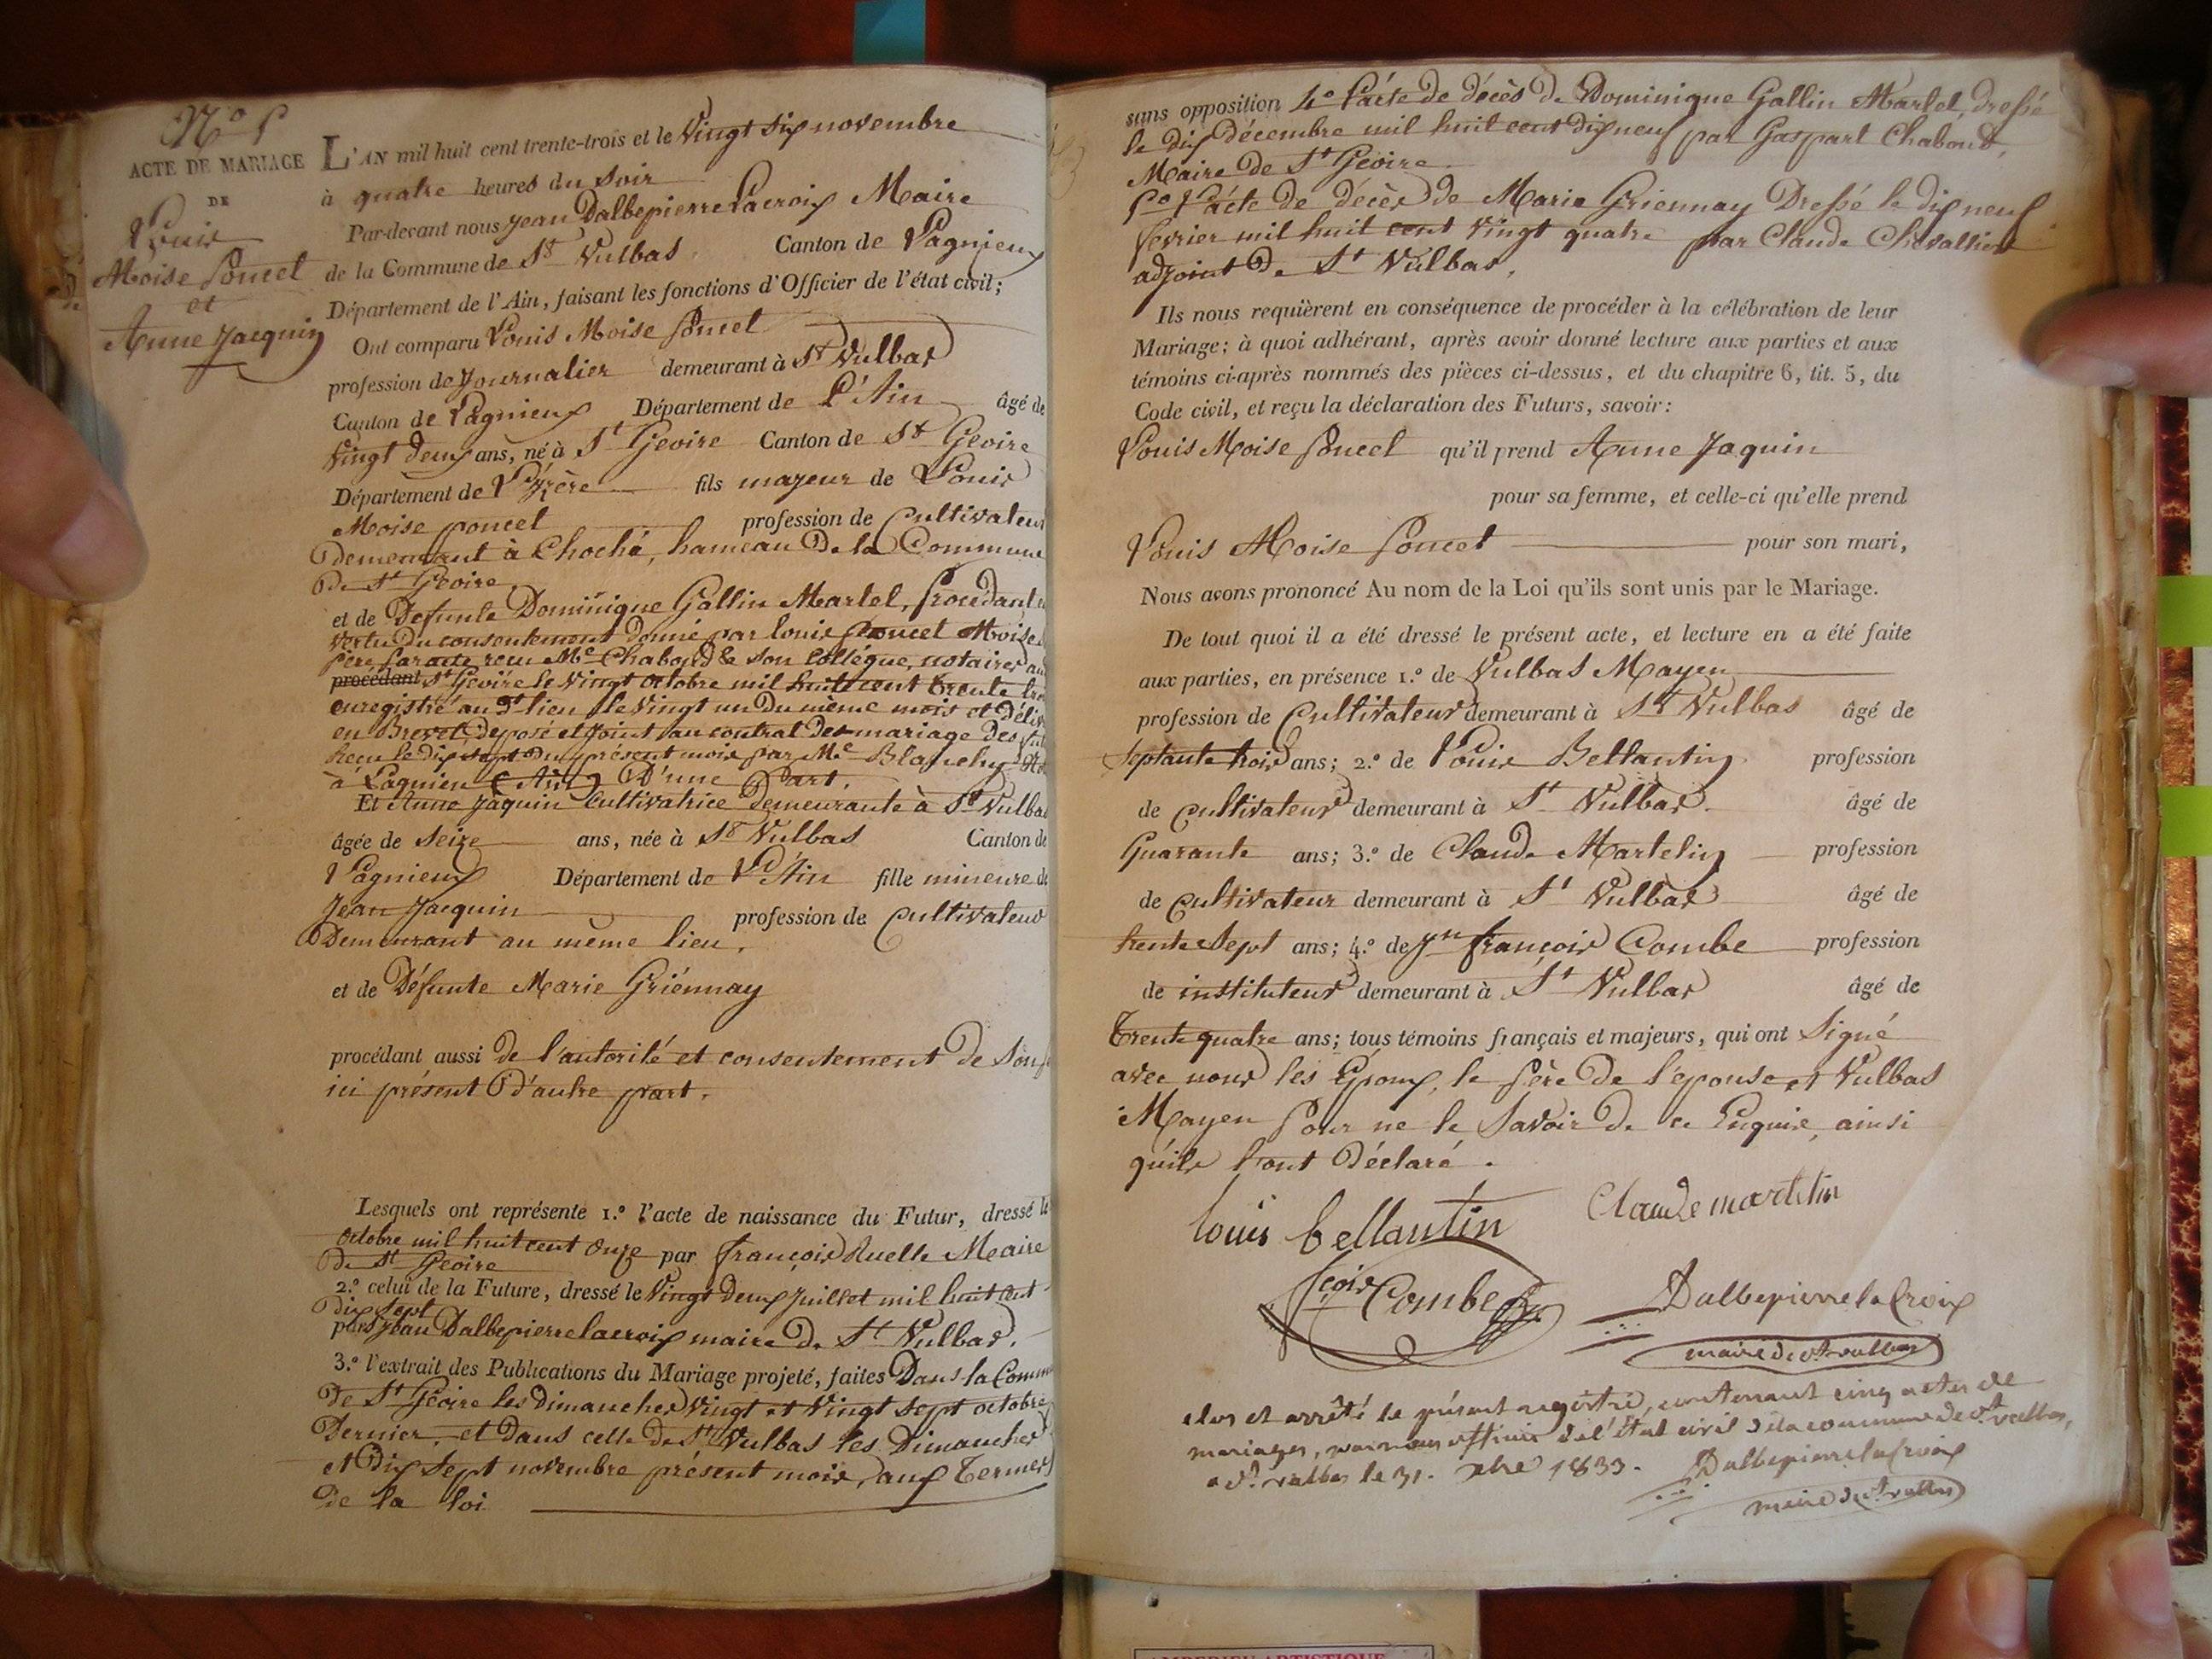 N.o 5
ACTE DE MARIAGE
DE
Louis
Moise Poncet
et
Anne Jacquin
L'AN mil huit cent trente-trois et le Vingt six novembre
à quatre heures du soir
Par-devant nous Jean Dalbepierre Lacroix Maire
de la Commune de St Vulbas, Canton de Lagnieux
Département de l'Ain, faisant les fonctions d'Officier de l'état civil;
Ont comparu Louis Moise Poncet
profession de Journalier demeurant à St Vulbas
Canton de Lagnieux Département de L'Ain âgé de
Vingt deux ans, né à St Geoire Canton de St Geoire
Département de L'Izère fils majeur de Louis
Moise poncet profession de Cultivateur
Demeurant à Choché, hameau De la Commune
De St Geoire
et de Defunte Dominique Gallin Martel, procédant
Vertu Du consentement donné par louis Poncet Moise
père par acte reçu Me Chaboud & son Collégue, notaires
procédant St Geoire le Vingt octobre mil huit cent trente
enregistré au dt lieu le Vingt un Du même mois et
en Brevet, déposé et joint au contrat de mariage des
Recu le dix sept Du présent mois par Me Blanchy
à Lagnieu (Ain) D'une Part.
Et Anne Jaquin Cultivatrice Demeurante à St Vulbas
âgée de Seize ans, née à St Vulbas Canton de
Lagnieux Département de L'Ain fille mineure de
Jean Jacquin profession de Cultivateur
Demeurant au même lieu,
et de Défunte Marie Griénnay
procédant aussi de l'autorité et consentement de Son
ici présent D'autre part.
Lesquels ont représente 1.o l'acte de naissance du Futur, dressé le
octobre mil huit cent Onze par françois Ruelle Maire
De St Geoire
2.o celui de la Future, dressé le Vingt deux Juillet mil huit cent
dix sept
par Jean Dalbepierrelacroix maire De St Vulbas.
3.o l'extrait des Publications du Mariage projeté, faites Dans la Commune
De St Geoire les dimanches Vingt et Vingt sept octobre
Dernier, et Dans celle de St Vulbas les Dimanches
et Dix Sept novembre présent mois, aux Termes
De la loi
sans opposition 4o L'acte de décès De Dominique Gallin Martel, dressé
le dix décembre mil huit cent dix neuf par Gaspart Chaboud,
Maire De St Geoire.
5o L'acte De décès de Marie Griennay Dressé le dix neuf
fevrier mil huit cent Vingt quatre par Claude Chevallier
adjoint De St Vulbas,
Ils nous requièrent en conséquence de procéder à la célébration de leur
Mariage; à quoi adhérant, après avoir donné lecture aux parties et aux
témoins ci-après nommés des pièces ci-dessus, et du chapitre 6, tit. 5, du
Code civil, et reçu la déclaration des Futurs, savoir:
Louis Moise Poncet qu'il prend Anne Jaquin
pour sa femme, et celle-ci qu'elle prend
Louis Moise Poncet pour son mari,
Nous avons prononcé Au nom de la Loi qu'ils sont unis par le Mariage.
De tout quoi il a été dressé le présent acte, et lecture en a été faite
aux parties, en présence 1.o de Vulbas Mayen
profession de Cultivateur demeurant à St Vulbas âgé de
Septante trois ans; 2.o de Louis Bellantin profession
de Cultivateur demeurant à St Vulbas. âgé de
Quarante ans; 3.o de Claude Martelin profession
de Cultivateur demeurant à St Vulbas âgé de
trente Sept ans; 4.o de Jn françois Combe profession
de instituteur demeurant à St Vulbas âgé de
Trente quatre ans; tous témoins français et majeurs, qui ont Signé
avec nous les Epoux, le Père De l'épouse et Vulbas
Mayen Pour ne le Savoir De ce Enquis, ainsi
qu'ils l'ont Déclaré.
louis bellantin
Claude martelin
fçois Combe
Dalbepierrelacroix
maire de st vulbas
clos et arrêté le présent registre, contenant cinq actes de
mariages, par nous officier de l'état civil de la commune de st vulbas,
a st. vulbas le 31. xbre 1833. Dalbepierrelacroix
maire de st vulbas